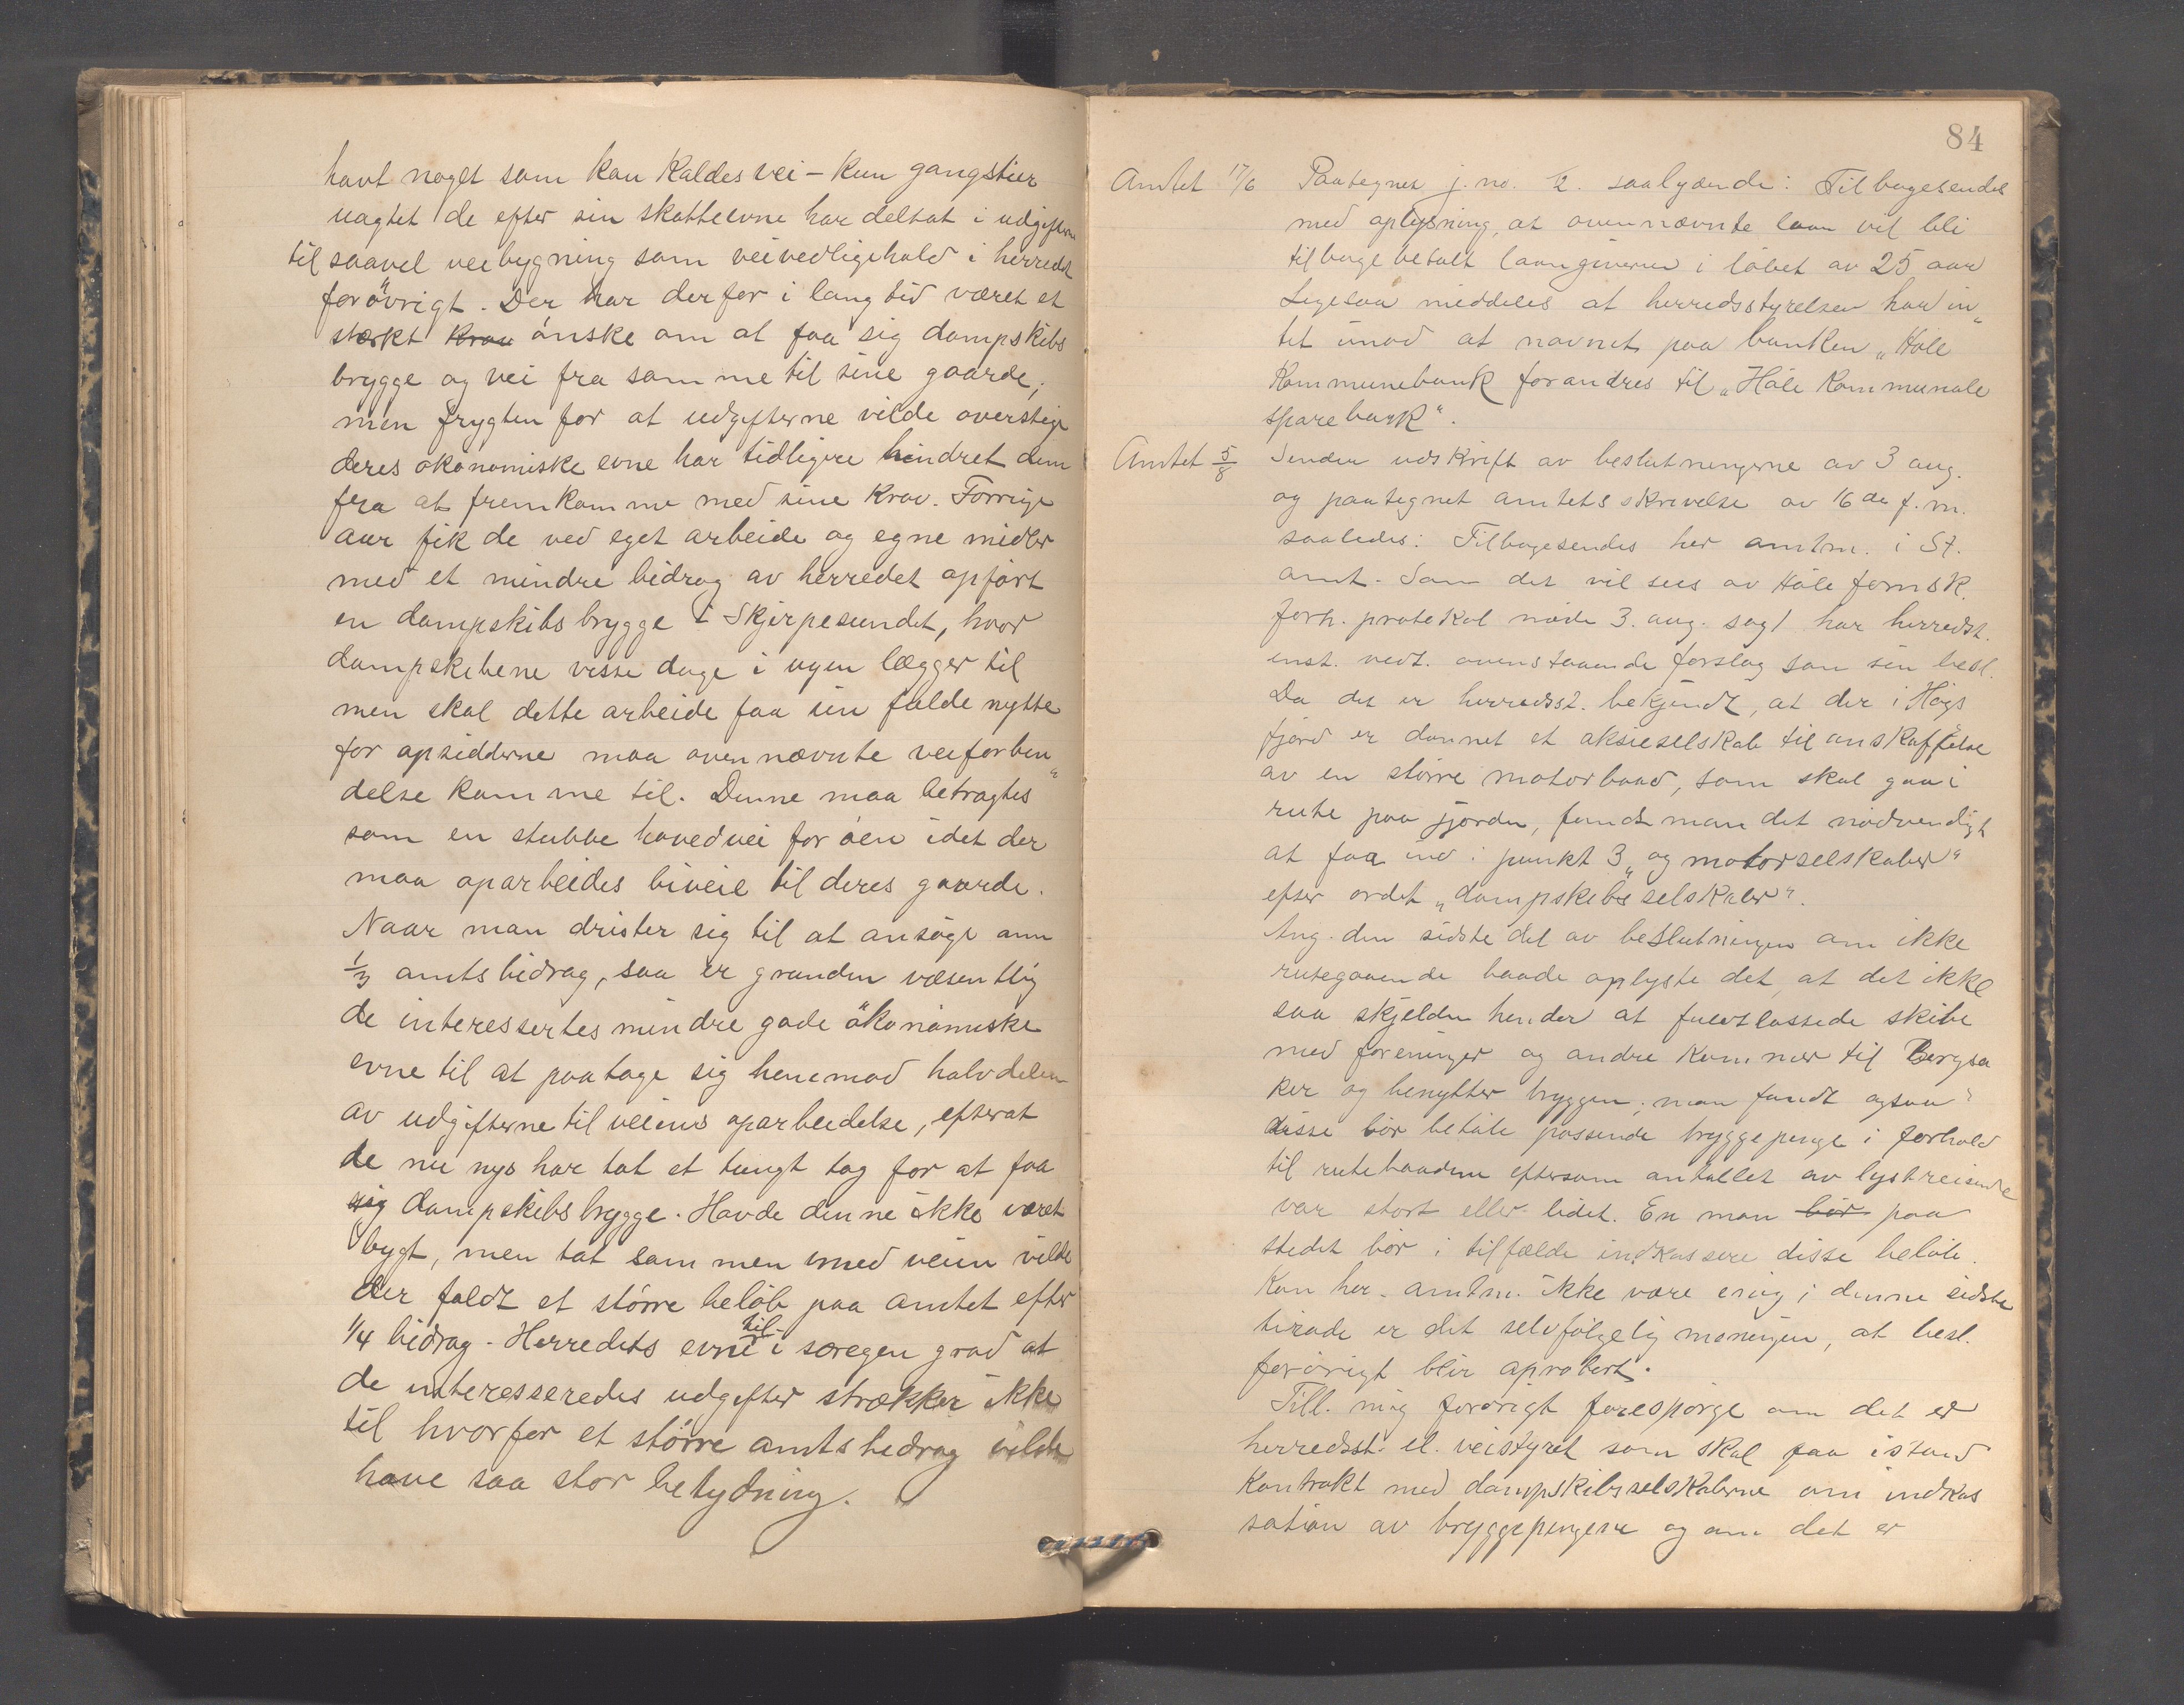 havt noget som kan kaldes vei – kun gangstier
uagtet de efter sin skatteevne har deltat i udgifterne
til saavel veibygning som veivedligehold i herredet
forøvrigt. Der har derfor i lang tid været et
stærkt krav ønske om at faa sig dampskibs
brygge og vei fra samme til sine gaarde,
men frygten for at udgifterne vilde overstige
deres økonomiske evne har tidligere hindret dem
fra at fremkomme med sine krav. Forrige
aar fik de ved eget arbeide og egne midler
med et mindre bidrag av herredet opført
en dampskibsbrygge i Skjerpesundet, hvor
dampskibene visse dage i ugen lægger til
men skal dette arbeide faa sin fulde nytte
for opsidderne maa ovennævnte veiforbin„
delse komme til. Denne maa betragtes
som en stubbe hovedvei for øen idet der
maa oparbeides biveie til deres gaarde.
Naar man drister sig til at ansøge om
1/3 amtsbidrag, saa er grunden væsentlig
de interessertes mindre gode økonomiske
evne til at paatage sig henimod halvdelen
av udgifterne til veiens oparbeidelse, efterat
de nu nys har tat et tungt tag for at faa
sig dampskibsbrygge. Havde denne ikke været
bygt, men tat sammen med veien vilde
der faldt et større beløb paa amtet efter
1/4 bidrag - Herredets evne til i særegen grad at
de interesseredes udgifter strækker ikke
til hvorfor et større amtsbidrag vilde
have saa stor betydning.
84
Amtet 17/6 Paategnes j. no. 12. saalydende: Tilbagesendes
med oplysning, at ovennævnte laan vil bli
tilbagebetalt laangiveren i løbet av 25 aar
Ligesaa meddeles at herredsstyrelsen har in„
tet imod at navnet paa banken „Høle
Kommunebank forandres til „Høle Kommunale
sparebank“.
Amtet 5/8 Sender udskrift av beslutningerne av 3 aug.
og paategnet amtets skrivelse av 16de f.m.
saaledes: Tilbagesendes her amtm. i St.
amt. Som det vil sees av Høle formsk.
forh. protokol møde 3. aug. sag 1 har herredst.
enst. vedt. ovenstaaende forslag som sin besl.
Da det er herredsst. bekjendt, at der i Høgs
fjord er dannet et aksieselskab til anskaffelse
av en større motorbaad, som skal gaa i
rute paa fjorden, fandt man det nødvendigt
at faa ind i punkt 3 „og motorselskaber“
efter ordet „dampskibsselskaber“.
Ang. den sidste del av beslutningen om ikke
rutegaaende baade oplyste det, at det ikke
saa skjelden hender at fuldlassede skibe
med foreninger og andre kommer til Bergsa
ker og benytter bryggen; man fandt ogsaa
disse bør betale passende bryggepenge i forhold
til rutebaadene eftersom antallet av lystreisende
var stort eller lidet. En man bør paa
stedet bør i tilfælde indkassere disse beløb.
Kan her. amtm. ikke være enig i denne sidste
tirade er det selvfølgelig meningen, at besl.
forøvrigt blir aprobert.
Till. mig forøvrigt forespørge om det er
herredsst. el. veistyret som skal faa istand
kontrakt med dampskibsselskaberne om indkas
sation av bryggepengene og om det er